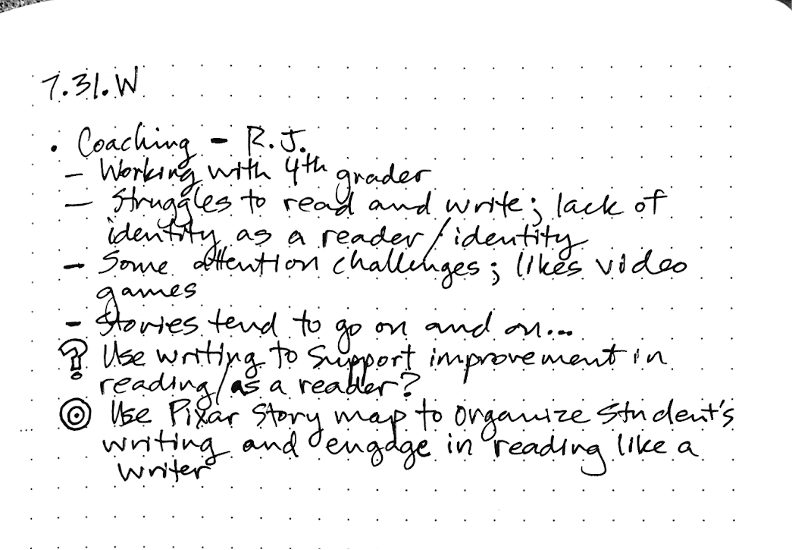 7.31.W
• Coaching - R.J.
- Working with 4th grader
- Struggles to read and write; lack of
identity as a reader/identity
- Some attention challenges; likes video
games
- Stories tend to go on and on...
? Use writing to support improvement in
reading/as a reader?
◎ Use Pixar Story map to organize student's
writing and engage in reading like a
writer